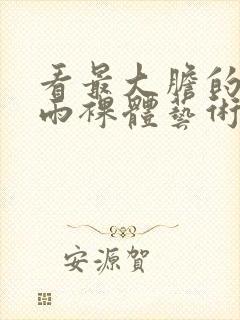 看最大膽的
雨裸體藝術
安源賀